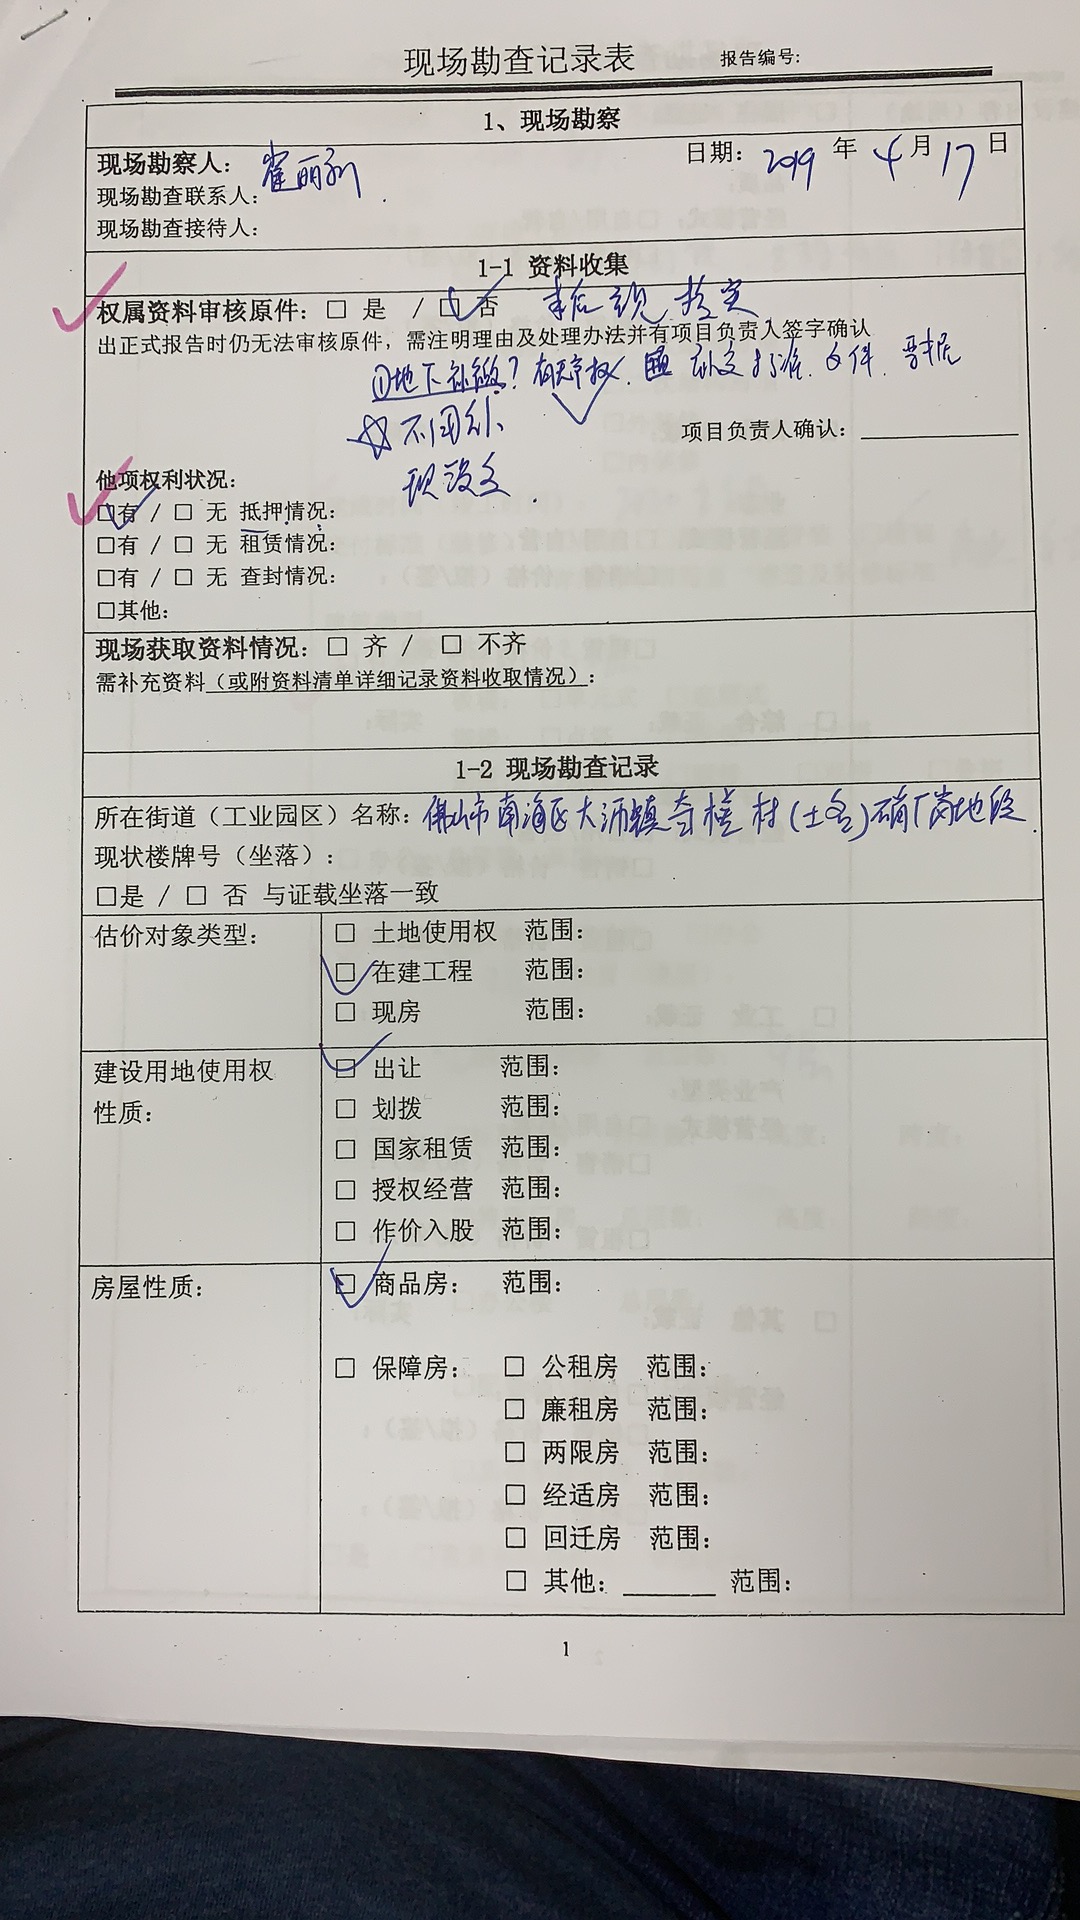 现场勘查记录表 报告编号:
1、现场勘察
现场勘察人: 崔丽 日期: 2019 年 4 月 17 日
现场勘查联系人:
现场勘查接待人:
1-1 资料收集
权属资料审核原件: □ 是 / ☑ 否
出正式报告时仍无法审核原件，需注明理由及处理办法并有项目负责人签字确认
①地下补缴? 有无产权. 补交标准. 文件.
☆不用补
项目负责人确认: ________
现没交.
他项权利状况:
☑有 / □ 无 抵押情况:
□有 / □ 无 租赁情况:
□有 / □ 无 查封情况:
□其他:
现场获取资料情况: □ 齐 / □ 不齐
需补充资料(或附资料清单详细记录资料收取情况):
1-2 现场勘查记录
所在街道(工业园区)名称: 佛山市南海区大沥镇奇槎村(土名)硝厂岗地段.
现状楼牌号(坐落):
□是 / □ 否 与证载坐落一致
估价对象类型: □ 土地使用权 范围:
☑ 在建工程 范围:
□ 现房 范围:
建设用地使用权性质: ☑ 出让 范围:
□ 划拨 范围:
□ 国家租赁 范围:
□ 授权经营 范围:
□ 作价入股 范围:
房屋性质: ☑ 商品房: 范围:
□ 保障房: □ 公租房 范围:
□ 廉租房 范围:
□ 两限房 范围:
□ 经适房 范围:
□ 回迁房 范围:
□ 其他: ______ 范围:
1